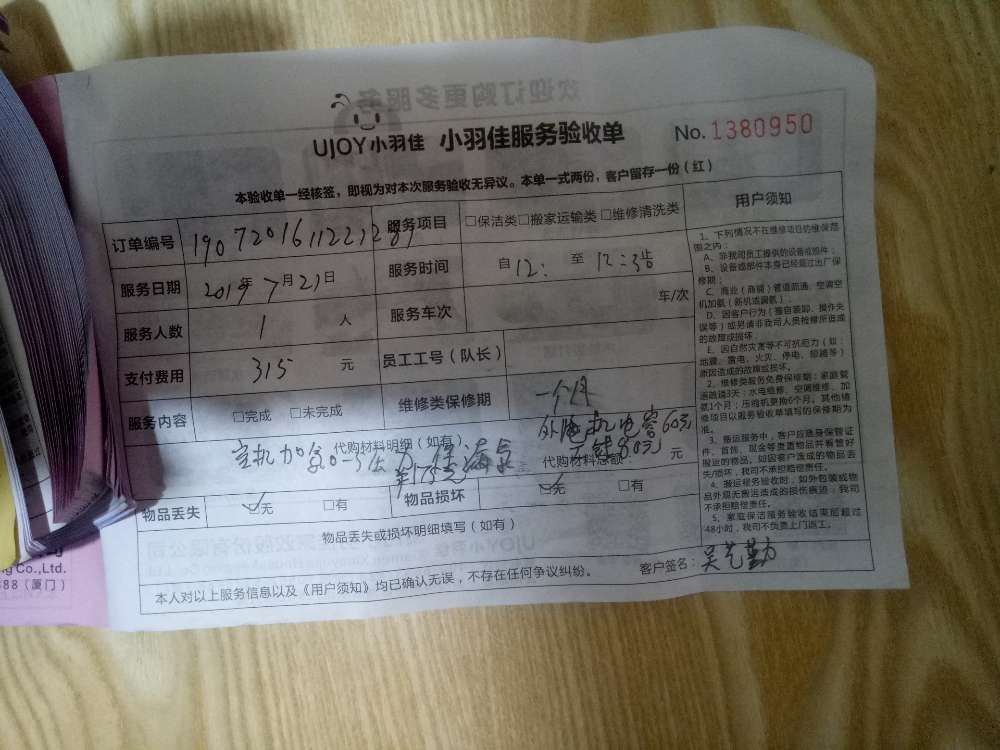 欢迎订购更多服务
UJOY小羽佳 小羽佳服务验收单 No. 1380950
本验收单一经核签，即视为对本次服务验收无异议。本单一式两份，客户留存一份（红）
订单编号 服务项目 □保洁类□搬家运输类□维修清洗类
服务日期 2019年7月21日 服务时间 自12: 至
服务人数 1 人 服务车次 车/次
支付费用 315 元 员工工号（队长）
服务内容 □完成 □未完成 维修类保修期 一个月
代购材料明细（如有） 外 机电容60元
空机加氨 代购材料总额： 80元 元
175元
物品丢失 ☑无 □有 物品损坏 ☑无 □有
物品丢失或损坏明细填写（如有）
本人对以上服务信息以及《用户须知》均已确认无误，不存在任何争议纠纷。 客户签名：吴艺勤
用户须知
1、下列情况不在维修项目的维保范
围之内：
A、非我司员工提供的设备或部件；
B、设备或部件本身已经超过出厂保
修期；
C、商业（商铺）管道疏通、空调空
机加氨（新机或漏氨）；
D、因客户行为（擅自装卸、操作失
误等）或另请非我司人员检修所造成
的故障或损坏；
E、因自然灾害等不可抗拒力（如：
地震、雷电、火灾、停电、超频等）
原因造成的故障或损坏。
2、维修类服务免费保修期：家庭管
道疏通3天；水电维修、空调维修、加
氨1个月；压缩机更换6个月。其他维
修项目以服务验收单填写的保修期为
准。
3、搬运服务中，客户应随身保管证
件、首饰、现金等贵重物品并看管好
搬运的物品。如因客户造成的物品丢
失/损坏，我司不承担赔偿责任。
4、搬运服务验收时，如外包装或物
品外观无搬运造成的损伤痕迹，我司
不承担赔偿责任。
5、家庭保洁服务验收结束后超过
48小时，我司不负责上门返工。
g Co.,Ltd.
88（厦门）